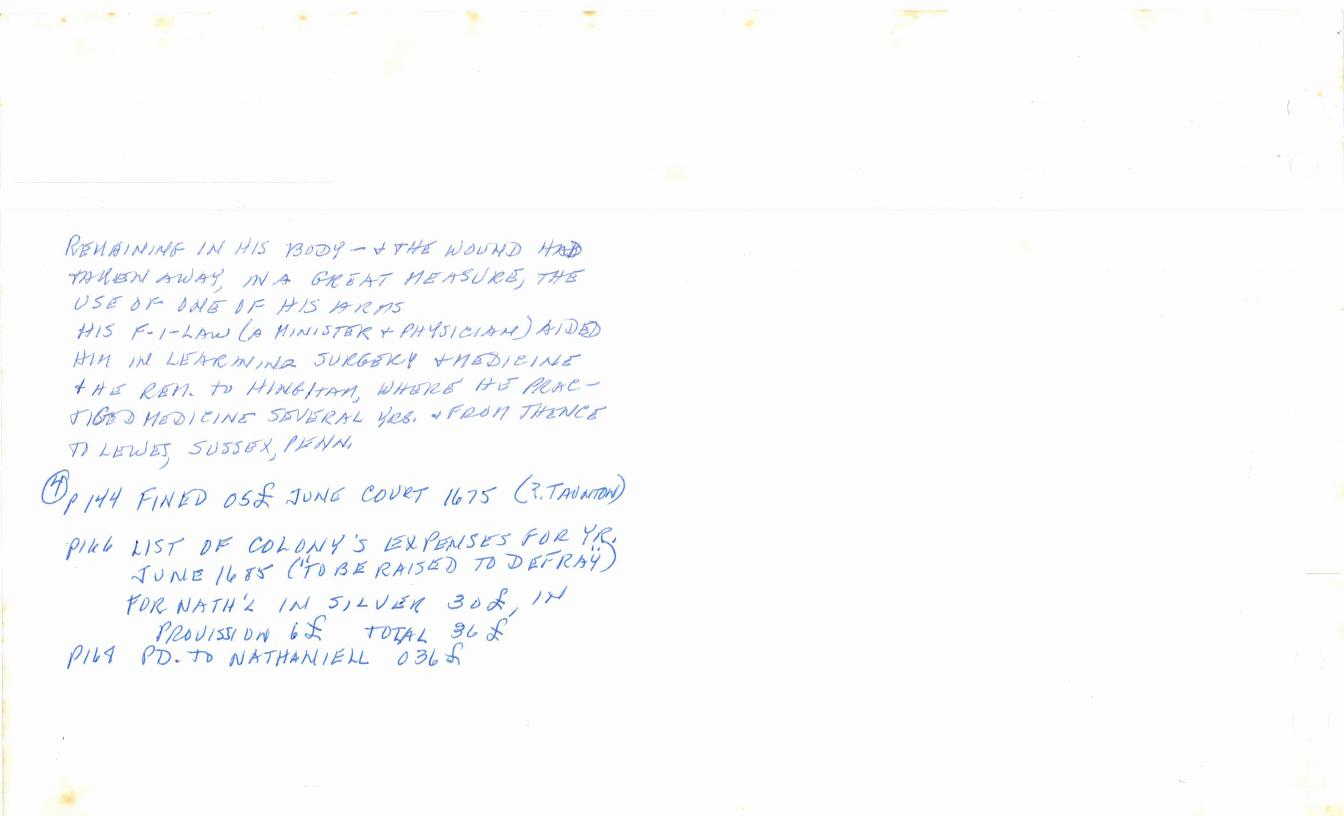 REMAINING IN HIS BODY — & THE WOUND HAD
TAKEN AWAY, IN A GREAT MEASURE, THE
USE OF ONE OF HIS ARMS
HIS F-I-LAW (A MINISTER & PHYSICIAN) AIDED
HIM IN LEARNING SURGERY & MEDICINE
& HE REM. TO HINGHAM, WHERE HE PRAC-
TICED MEDICINE SEVERAL YRS. & FROM THENCE
TO LEWES, SUSSEX, PENN.
④ P 144 FINED 05£ JUNE COURT 1675 (?. TAUNTON)
P166 LIST OF COLONY'S EXPENSES FOR YR.
JUNE 1685 ("TO BE RAISED TO DEFRAY")
FOR NATH'L IN SILVER 30£, IN
PROVISSION 6£ TOTAL 36£
P168 PD. TO NATHANIELL 036£